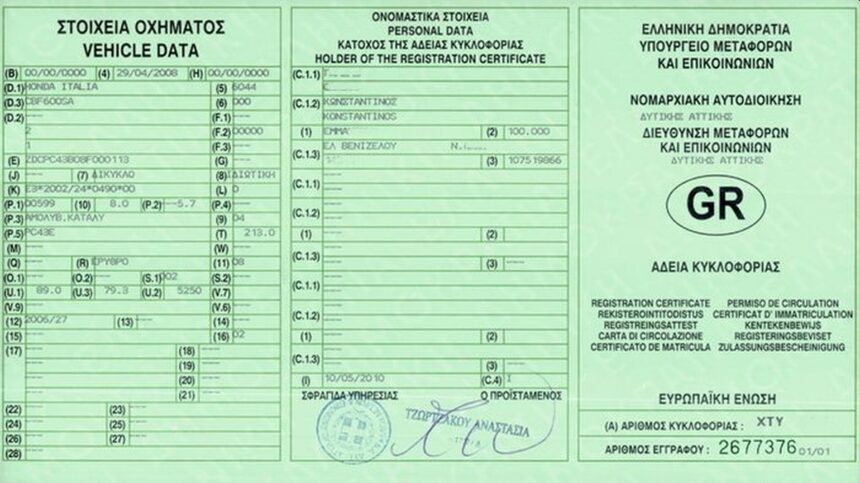 ΣΤΟΙΧΕΙΑ ΟΧΗΜΑΤΟΣ
VEHICLE DATA
(B) 00/00/0000 (4) 29/04/2008 (H) 00/00/0000
(D.1) HONDA ITALIA (5) 6044
(D.3) CBF600SA (6) 000
(D.2) --- (F.1) ---
2 (F.2) 00000
1 (F.3) ---
(E) ZDCPC43B08F000113 (G) ---
(J) --- (7) ΔΙΚΥΚΛΟ (8) ΙΔΙΩΤΙΚΗ
(K) E3*2002/24*0490*00 (L) 0
(P.1) 00599 (10) 8.0 (P.2) --5.7 (P.4) ---
(P.3) ΑΜΟΛΥΒ.ΚΑΤΑΛΥ (9) 04
(P.5) PC43E (T) 213.0
(M) --- (W) ---
(Q) --- (R) ΕΡΥΘΡΟ (11) 08
(O.1) --- (O.2) --- (S.1) 002 (S.2) ---
(U.1) 89.0 (U.3) 79.3 (U.2) 5250 (V.7) ---
(V.9) --- (V.6) ---
(12) 2006/27 (13) --- (14) ---
(15) --- (16) 02
(17) --- (18) ---
(19) ---
(20) ---
(21) ---
(22) --- (23) ---
(24) --- (25) ---
(26) --- (27) ---
(28) ---
ΟΝΟΜΑΣΤΙΚΑ ΣΤΟΙΧΕΙΑ
PERSONAL DATA
ΚΑΤΟΧΟΣ ΤΗΣ ΑΔΕΙΑΣ ΚΥΚΛΟΦΟΡΙΑΣ
HOLDER OF THE REGISTRATION CERTIFICATE
(C.1.1)
(C.1.2) ΚΩΝΣΤΑΝΤΙΝΟΣ
KONSTANTINOS
(1) ΕΜΜΑ (2) 100.000
(C.1.3) ΕΛ ΒΕΝΙΖΕΛΟΥ
(3) 107519866
(C.1.1) ---
(C.1.2) ---
(1) --- (2)
(C.1.3) ---
(3) ---
(C.1.1) ---
(C.1.2) ---
(1) --- (2)
(C.1.3) ---
(3) ---
(I) 10/05/2010 (C.4) I
ΣΦΡΑΓΙΔΑ ΥΠΗΡΕΣΙΑΣ Ο ΠΡΟΪΣΤΑΜΕΝΟΣ
ΤΖΩΡΤΖΑΚΟΥ ΑΝΑΣΤΑΣΙΑ
ΕΛΛΗΝΙΚΗ ΔΗΜΟΚΡΑΤΙΑ
ΥΠΟΥΡΓΕΙΟ ΜΕΤΑΦΟΡΩΝ
ΚΑΙ ΕΠΙΚΟΙΝΩΝΙΩΝ
ΝΟΜΑΡΧΙΑΚΗ ΑΥΤΟΔΙΟΙΚΗΣΗ
ΔΥΤΙΚΗΣ ΑΤΤΙΚΗΣ
ΔΙΕΥΘΥΝΣΗ ΜΕΤΑΦΟΡΩΝ
ΚΑΙ ΕΠΙΚΟΙΝΩΝΙΩΝ
ΔΥΤΙΚΗΣ ΑΤΤΙΚΗΣ
GR
ΑΔΕΙΑ ΚΥΚΛΟΦΟΡΙΑΣ
REGISTRATION CERTIFICATE PERMISO DE CIRCULATION
REKISTEROINTITODISTUS CERTIFICAT D' IMMATRICULATION
REGISTREINGSATTEST KENTEKENBEWIJS
CARTA DI CIRCOLAZIONE REGISTERINGSBEVISET
CERTIFICATO DE MATRICULA ZULASSUNGSBESCHEINIGUNG
ΕΥΡΩΠΑΪΚΗ ΕΝΩΣΗ
(A) ΑΡΙΘΜΟΣ ΚΥΚΛΟΦΟΡΙΑΣ : ΧΤΥ
ΑΡΙΘΜΟΣ ΕΓΓΡΑΦΟΥ : 2677376 01/01